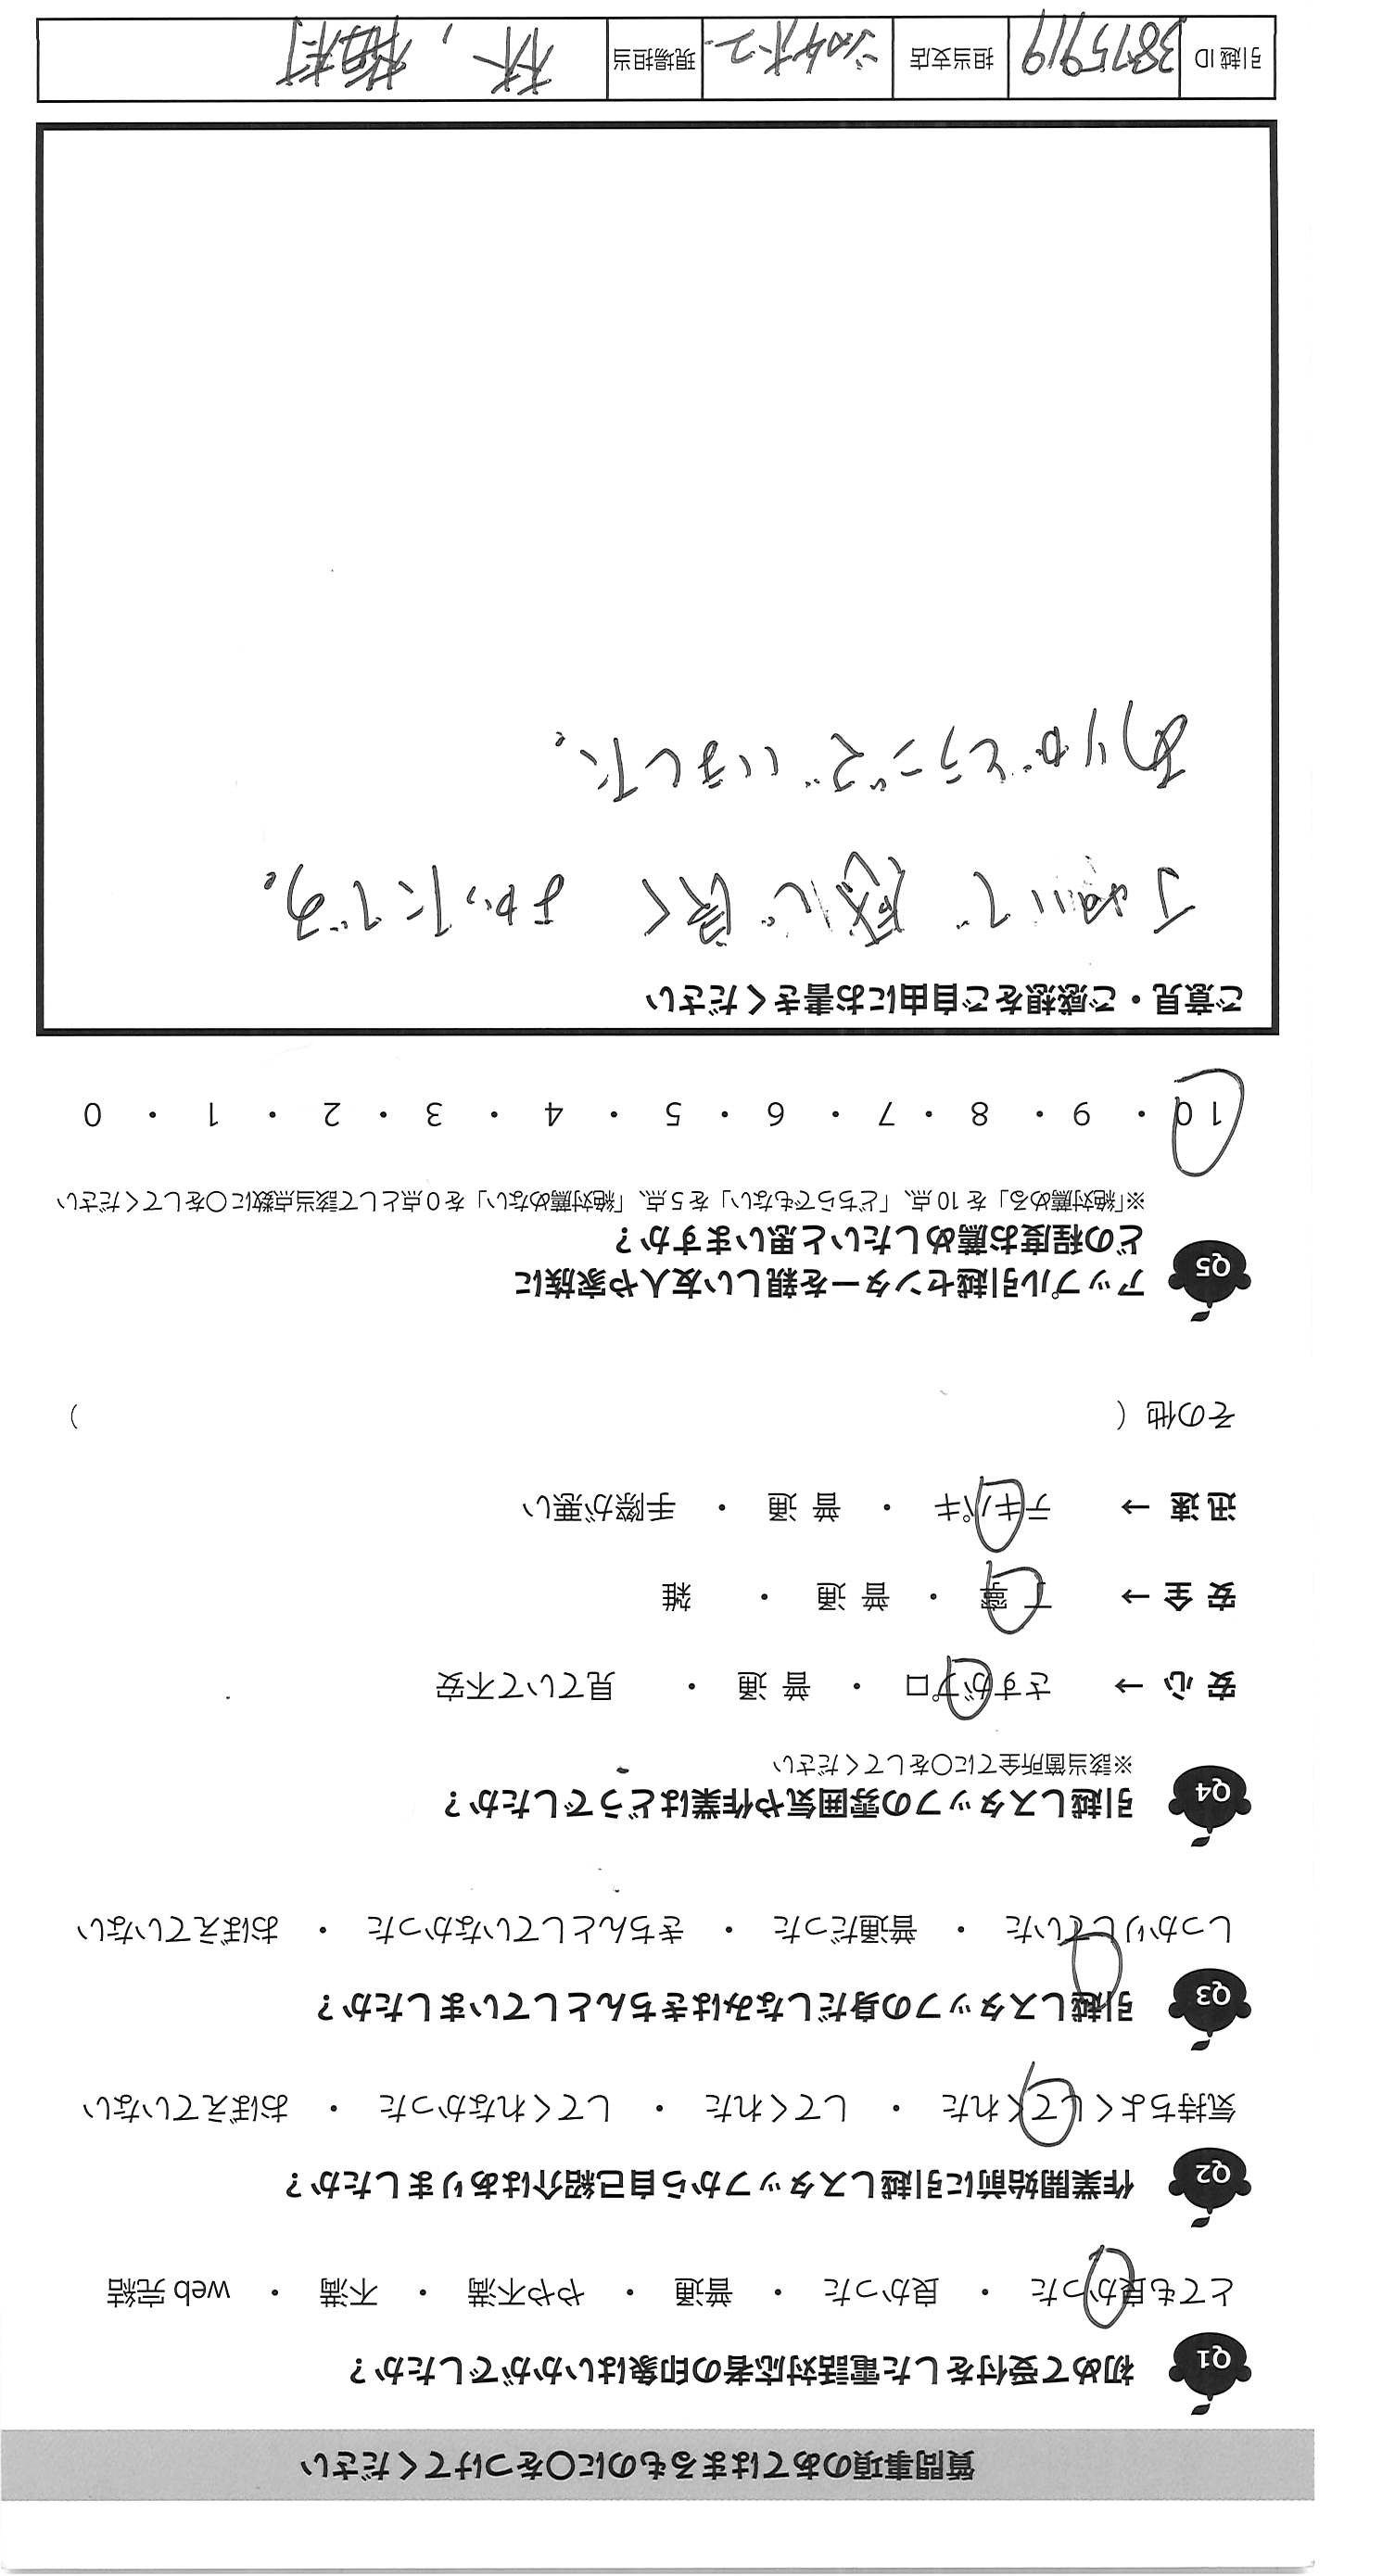 質問事項のあてはまるものに○をつけてください
Q1 初めて受付をした電話対応者の印象はいかがでしたか？
とても良かった ・ 良かった ・ 普通 ・ やや不満 ・ 不満 ・ web 完結
Q2 作業開始前に引越しスタッフから自己紹介はありましたか？
気持ちよくしてくれた ・ してくれた ・ してくれなかった ・ おぼえていない
Q3 引越しスタッフの身だしなみはきちんとしていましたか？
しっかりしていた ・ 普通だった ・ きちんとしていなかった ・ おぼえていない
Q4 引越しスタッフの雰囲気や作業はどうでしたか？
※該当箇所全てに○をしてください
安 心 → さすがプロ ・ 普 通 ・ 見ていて不安
安 全 → 丁 寧 ・ 普 通 ・ 雑
迅 速 → テキパキ ・ 普 通 ・ 手際が悪い
その他（ ）
Q5 アップル引越センターを親しい友人や家族に
どの程度お薦めしたいと思いますか？
※「絶対薦める」を 10 点、「どちらでもない」を 5 点、「絶対薦めない」を 0 点として該当点数に○をしてください
10 ・ 9 ・ 8 ・ 7 ・ 6 ・ 5 ・ 4 ・ 3 ・ 2 ・ 1 ・ 0
ご意見・ご感想をご自由にお書きください
丁ねいで 感じ良く よかったです。
ありがとうございました。
引越 ID 3875919 担当支店 現場担当 林,